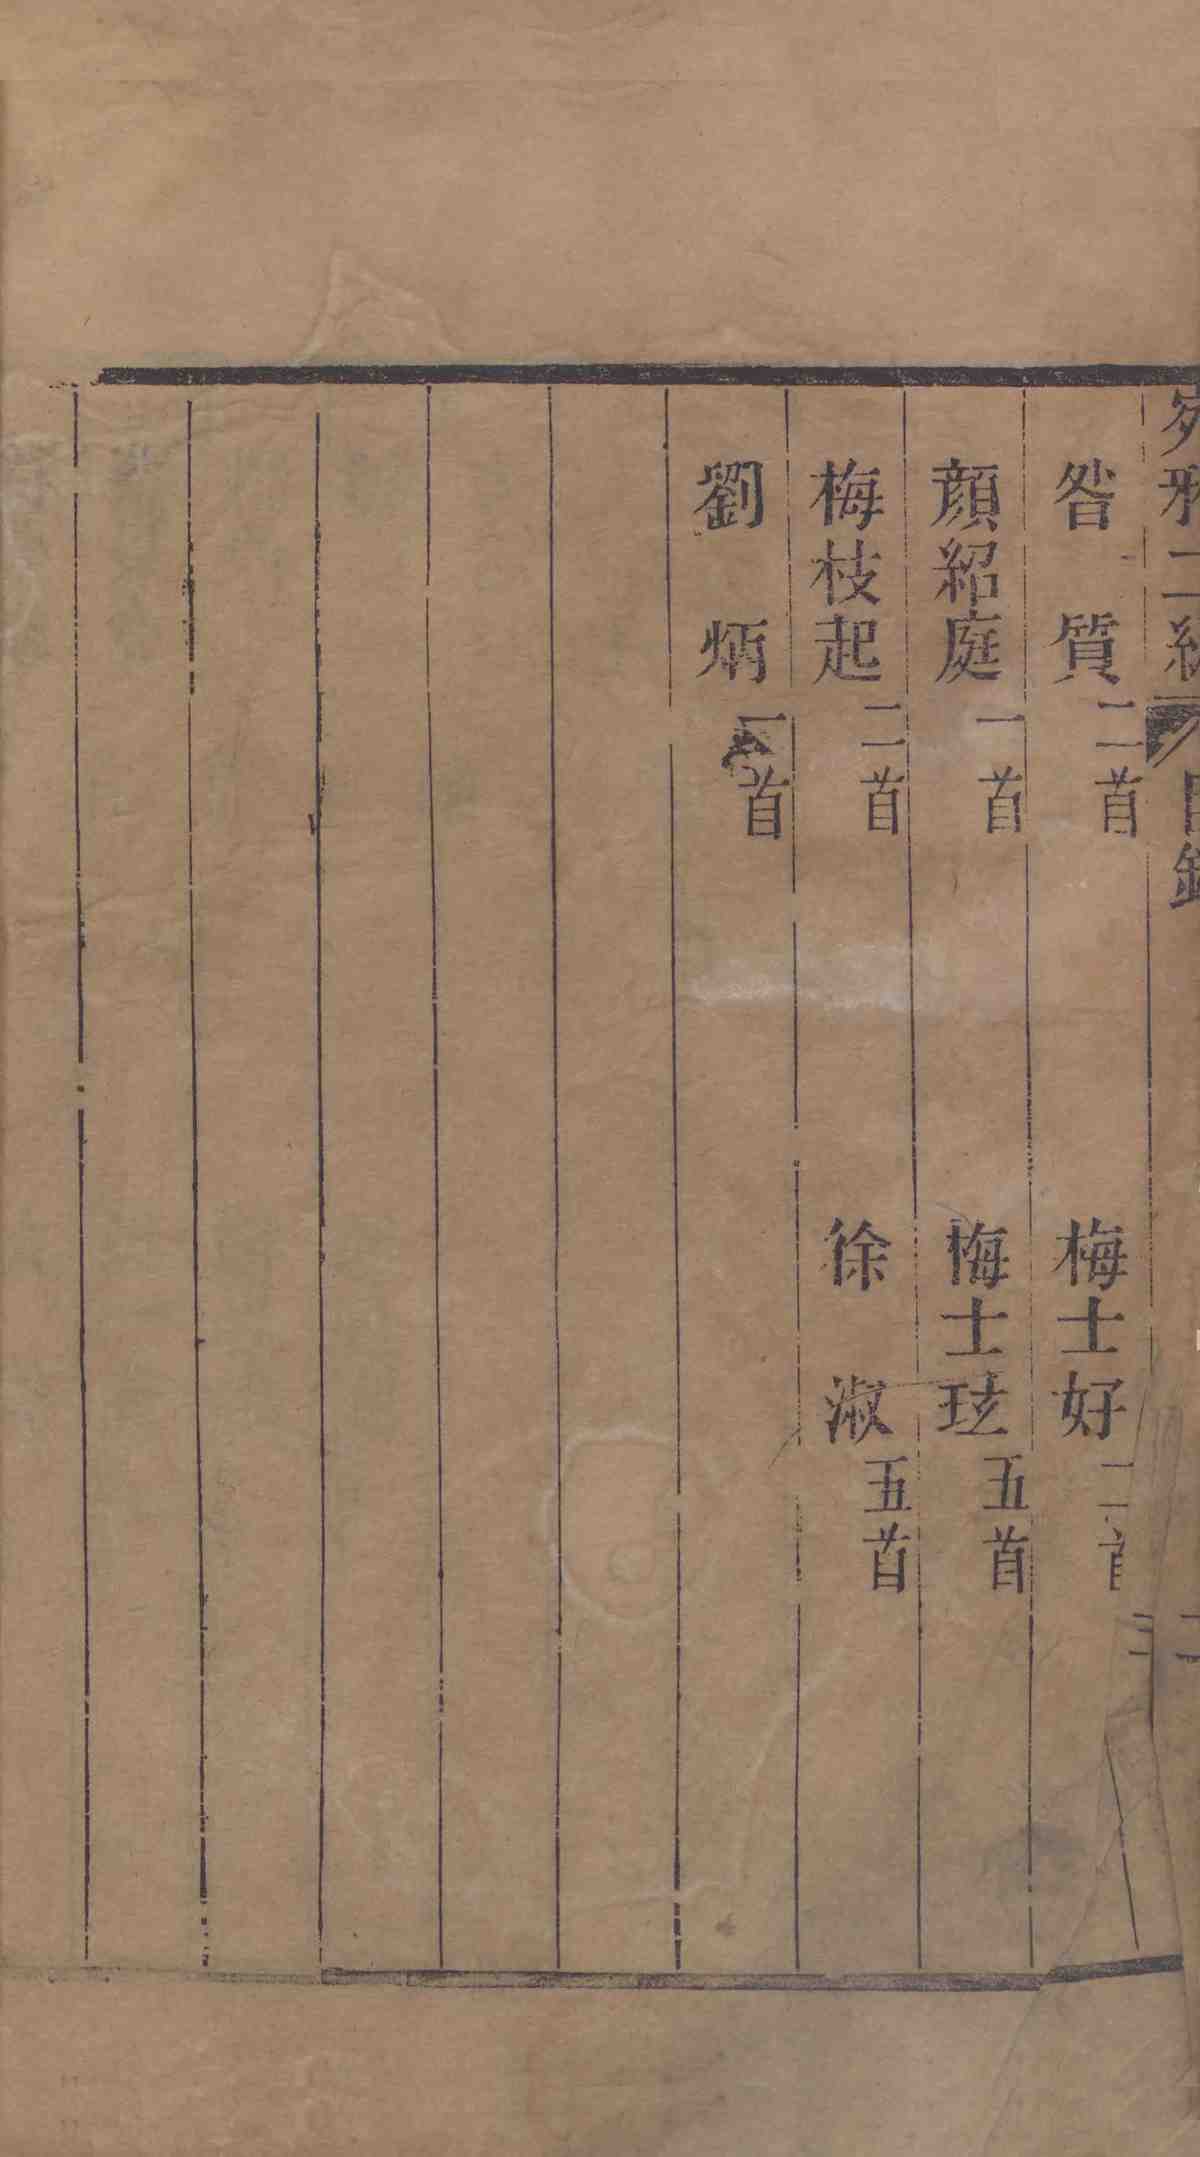 宛雅二編 目錄 二
昝 質二首 梅士好二首 三
顔紹庭一首 梅士玹五首
梅枝起二首 徐 淑五首
劉 炳一首